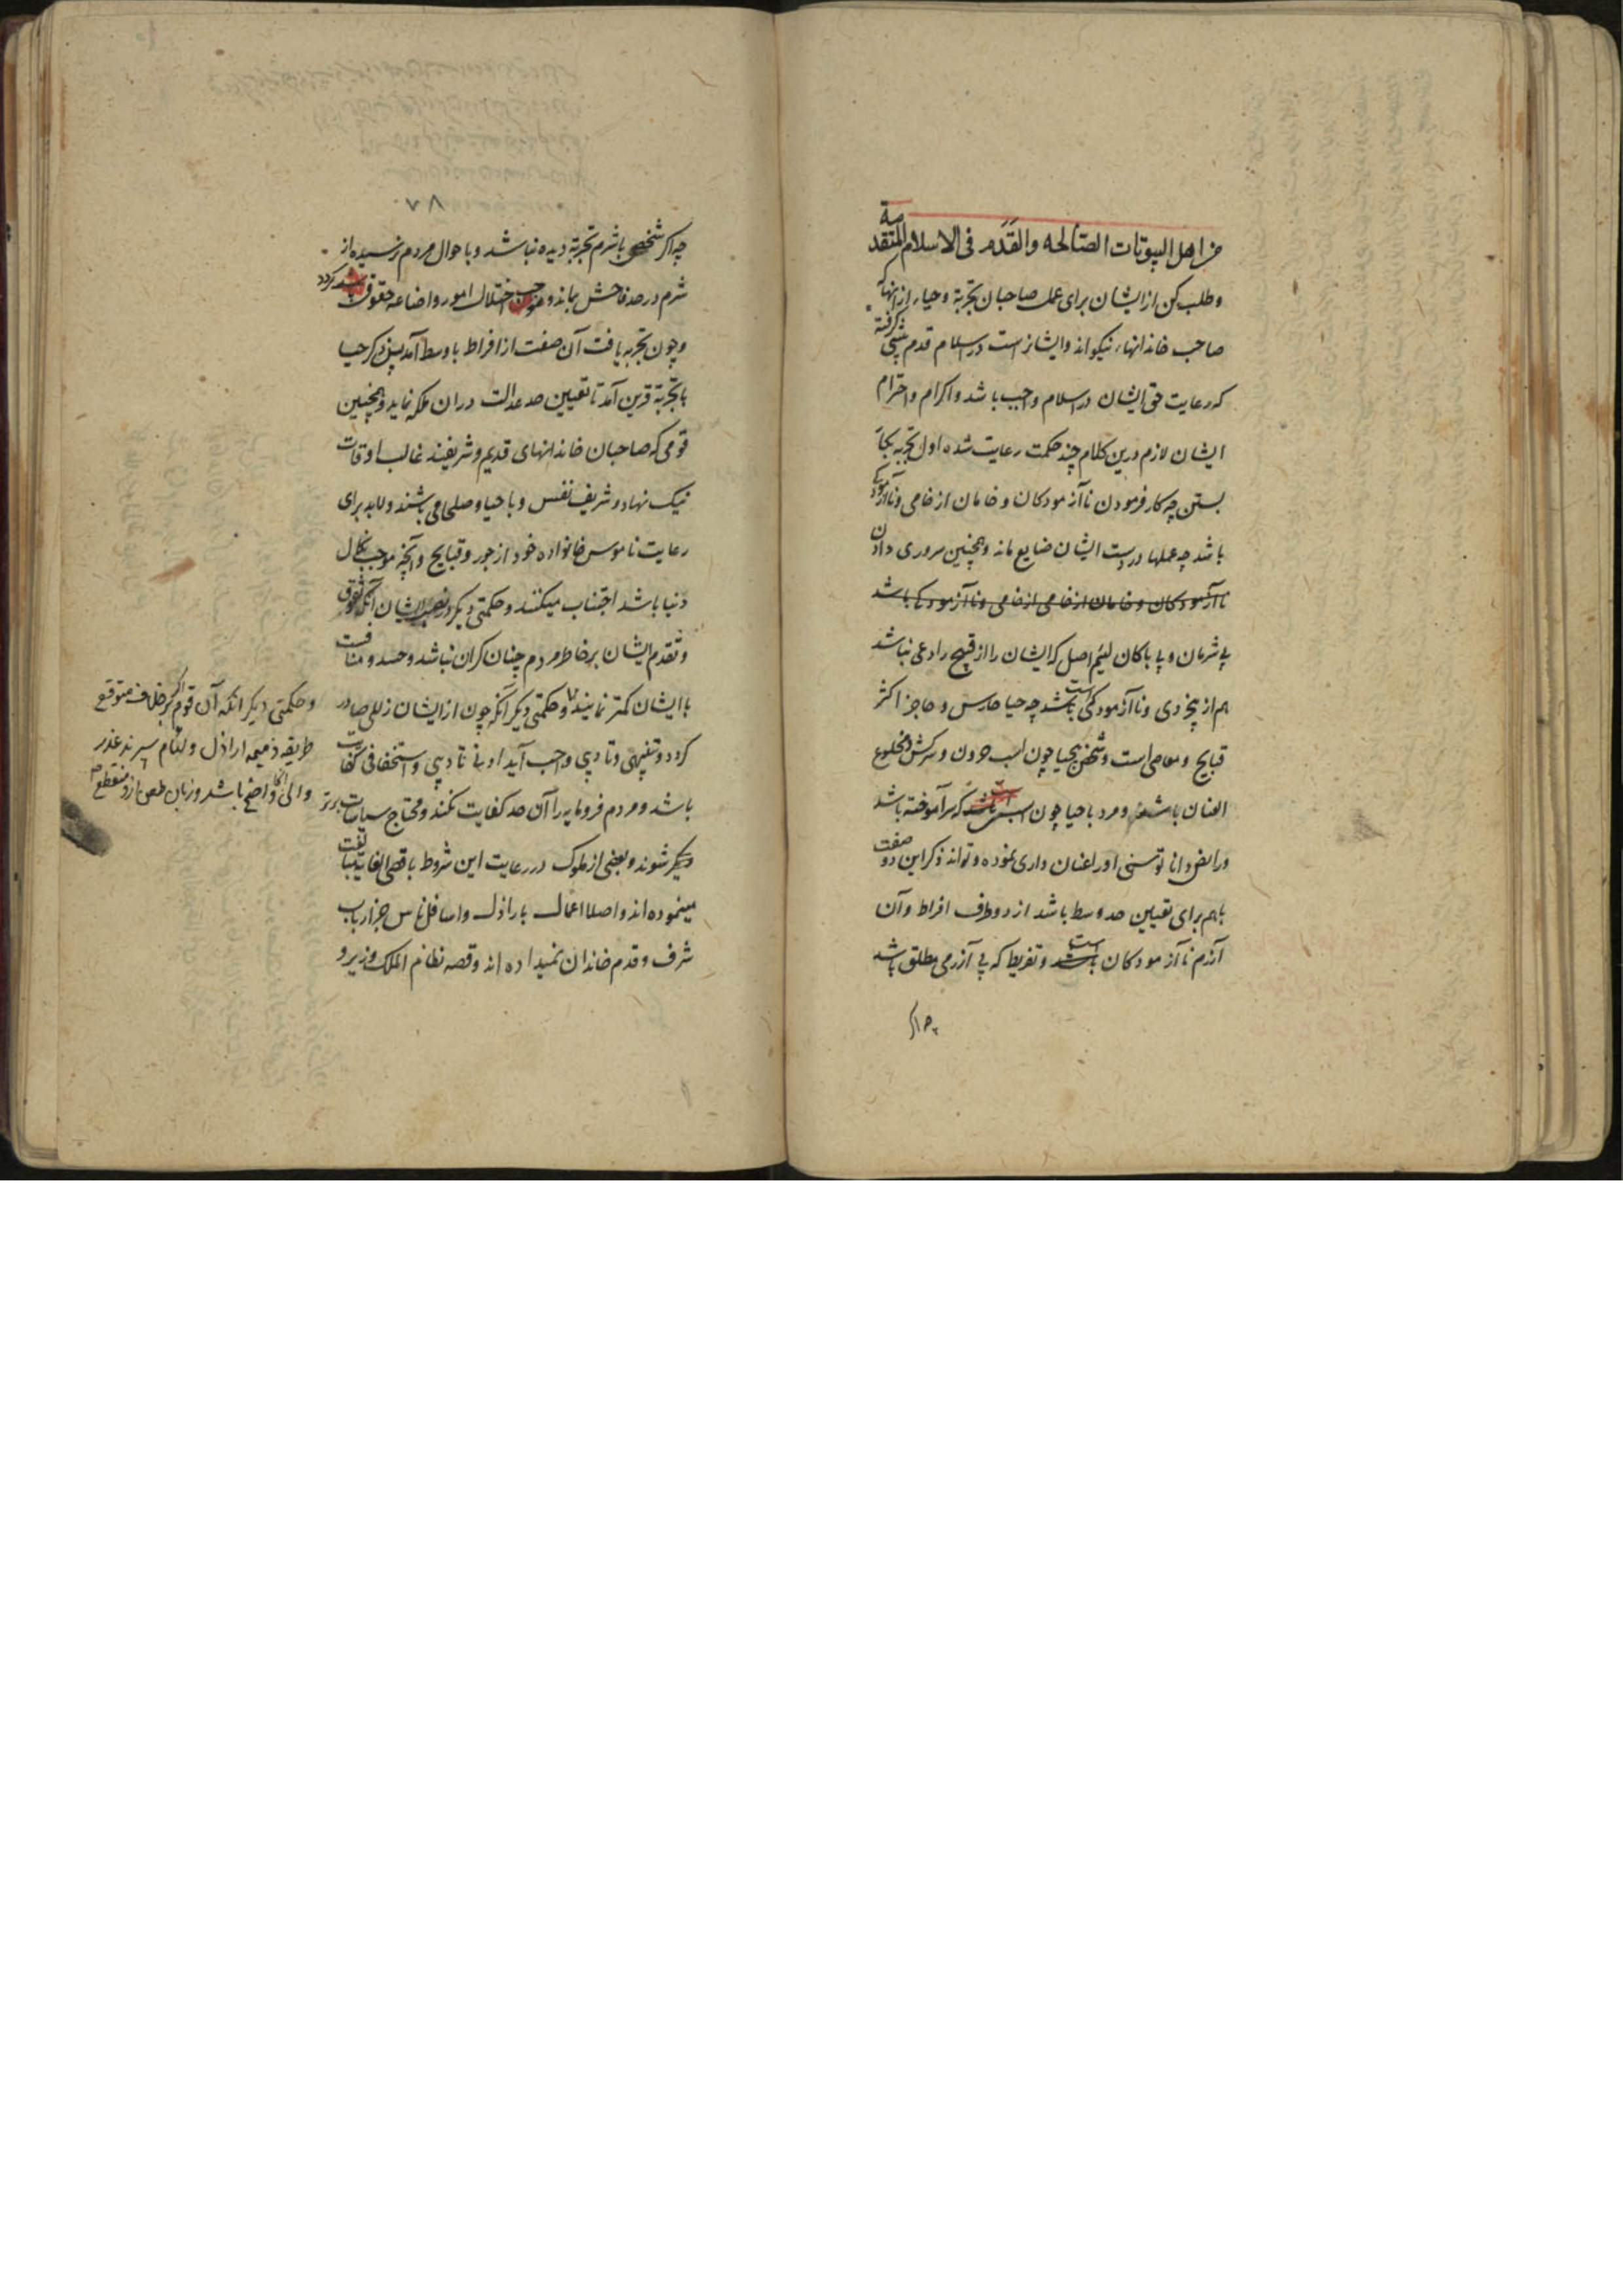 من اهل البيوتات الصالحه والقدم فى الاسلام المتقدمة
وطلب کن از ایشان برای عمل صاحبان تجربة وحیا، از آنها که
صاحب خاندانهاء نیکو اند وایشانراست در اسلام قدم پیشی گرفته
که رعایت حق ایشان در اسلام واجب باشد واکرام واحترام
ایشان لازم درین کلام چند حکمت رعایت شده اول تجربه بجا
بستن چه کار فرمودن ناآزمودکان وخامان از خامی وناآزمودکی
باشد چه عملها در دست ایشان ضایع ماند وهمچنین سروری دادن
ناآزمودکان وخامان از خامی از خامی وناآزمودکی باشد
بی شرمان وبی باکان لئیم اصل که ایشان را از قبیح رادعی نباشد
هم از بیخردی وناآزمودکی است چه حیا حارس وحاجز اکثر
قبایح ومعاصی است وشخص بیحیا چون اسب حرون وسرکش ومخلوع
العنان باشد ومرد باحیا چون اسبی است که سرآموخته باشد
ورایض دانا توسنی اورا عنان داری نموده وتواند ذکر این دو صفت
باهم برای تعیین حد وسط باشد از دو طرف افراط وآن
آزرم ناآزمودکان است وتفریط که بی آزرمی مطلق باشد
چه اکر
۷۸
چه اکر شخصی باشرم تجربة دیده نباشد وباحوال مردم نرسیده از
شرم در صد فاحش بماند وموجب اختلال امور واضاعه حقوق کردد
وچون تجربه یافت آن صفت از افراط باوسط آمد پس ذکر حیا
باتجربة قرین آمد تا تعیین حد عدالت در ان ملکه نماید وهمچنین
قومی که صاحبان خاندانهای قدیم وشریفند غالب اوقات
نیک نهاد وشریف نفس وباحیا وصلحا می باشند ولابد برای
رعایت ناموس خانواده خود از جور وقبایح وآنچه موجب نکال
دنیا باشد اجتناب میکنند وحکمتی دیکر در نصب ایشان آنکه تفوق
وتقدم ایشان بر خاطر مردم چنان کران نباشد وحسد ومنافست
با ایشان کمتر نمایند وحکمتی دیکر آنکه چون از ایشان زللی صادر
کردد وتنبیهی وتادیبی واجب آید ادنی تادیبی واستخفافی کفایت
باشد ومردم فرومایه را آن حد کفایت نکند ومحتاج سیاسات برتر
دیکر شوند وبعضی از ملوک در رعایت این شروط باقصی الغایة مبالغت
مینموده اند واصلا اعمال باراذل واسافل ناس جز ارباب
شرف وقدم خاندان نمیداده اند وقصه نظام الملک وزیر و
وحکمتی دیکر انکه آن قوم اکر خلاف متوقع
طریقه ذمیمه اراذل ولئام سپرند عذر
والی آنکاه واضح باشد وزبان طعن ازو منقطع